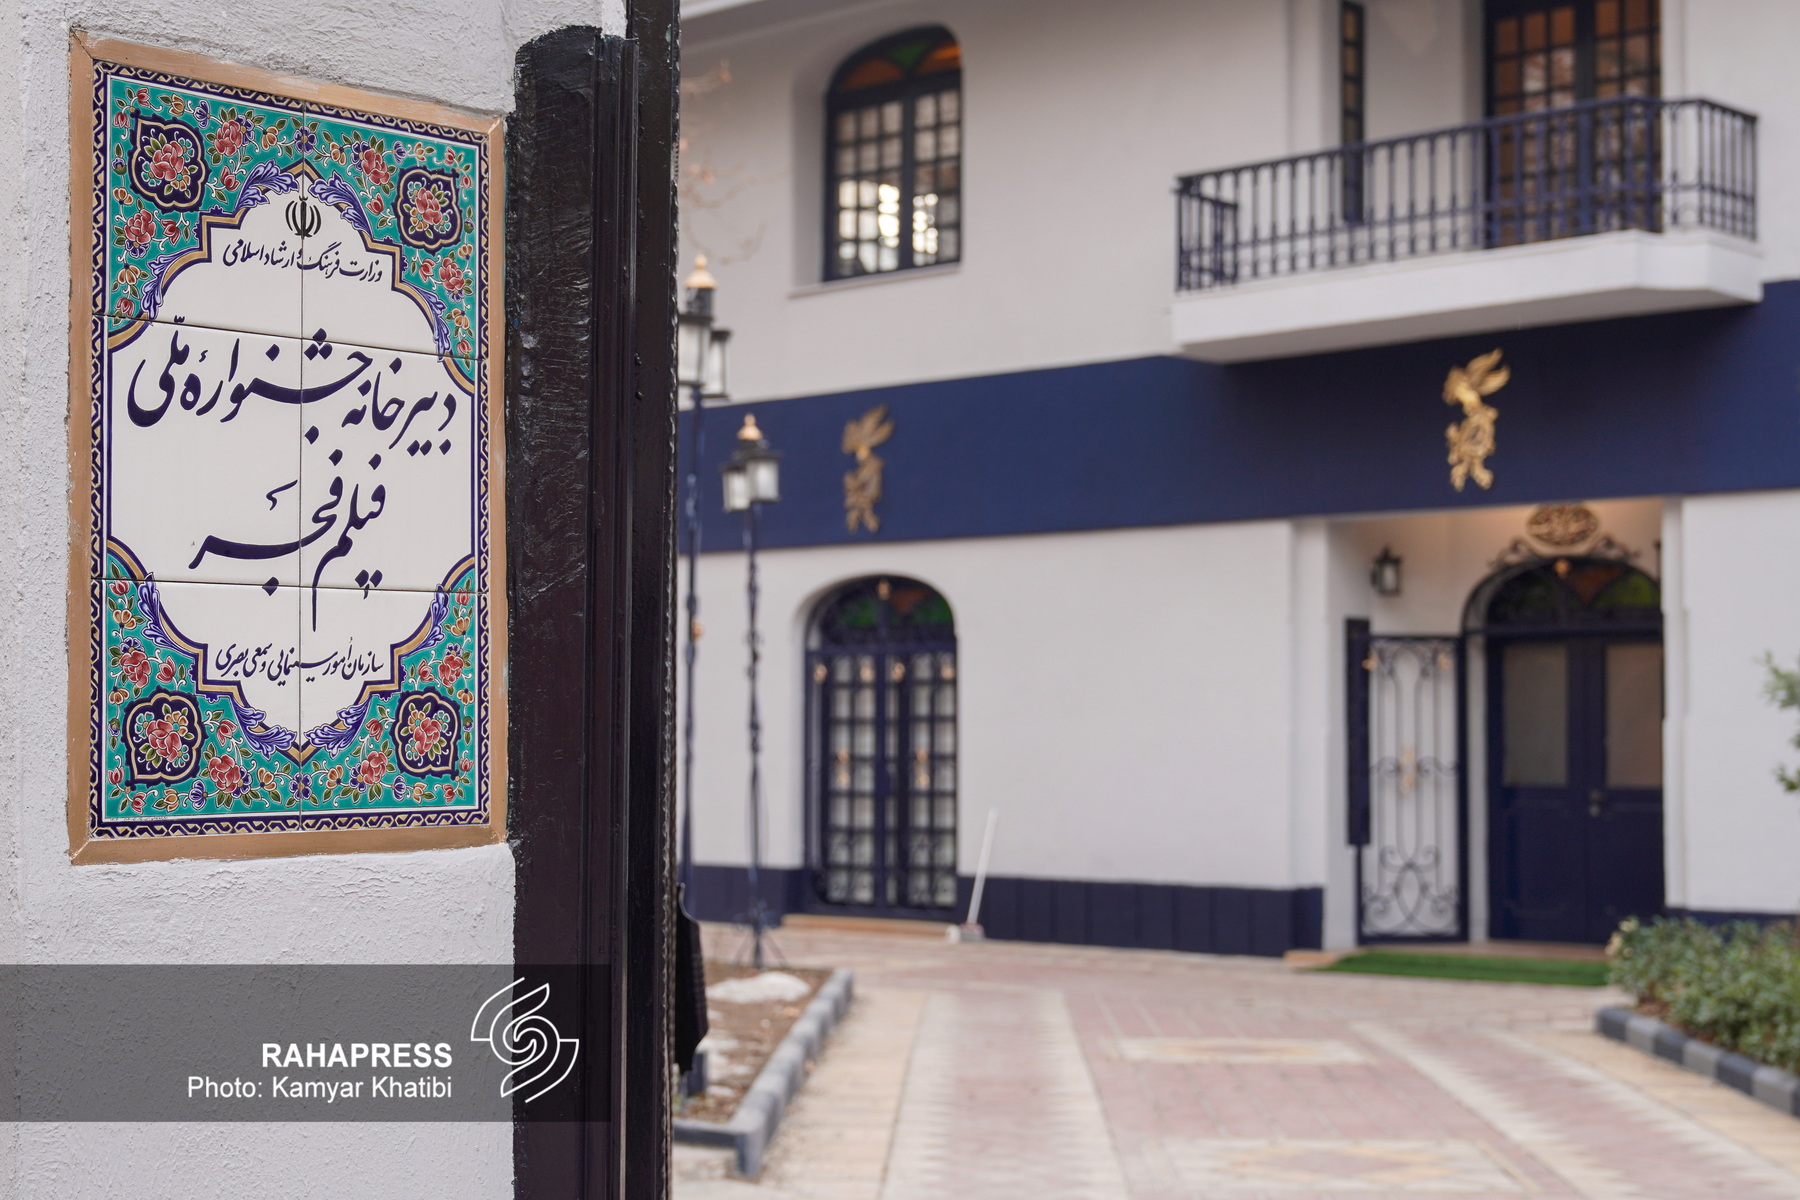 وزارت فرهنگ و ارشاد اسلامی
دبیرخانه جشنوارهٔ ملّی
فیلم فجر
سازمان اُمور سینمایی و سمعی بصری
RAHAPRESS
Photo: Kamyar Khatibi